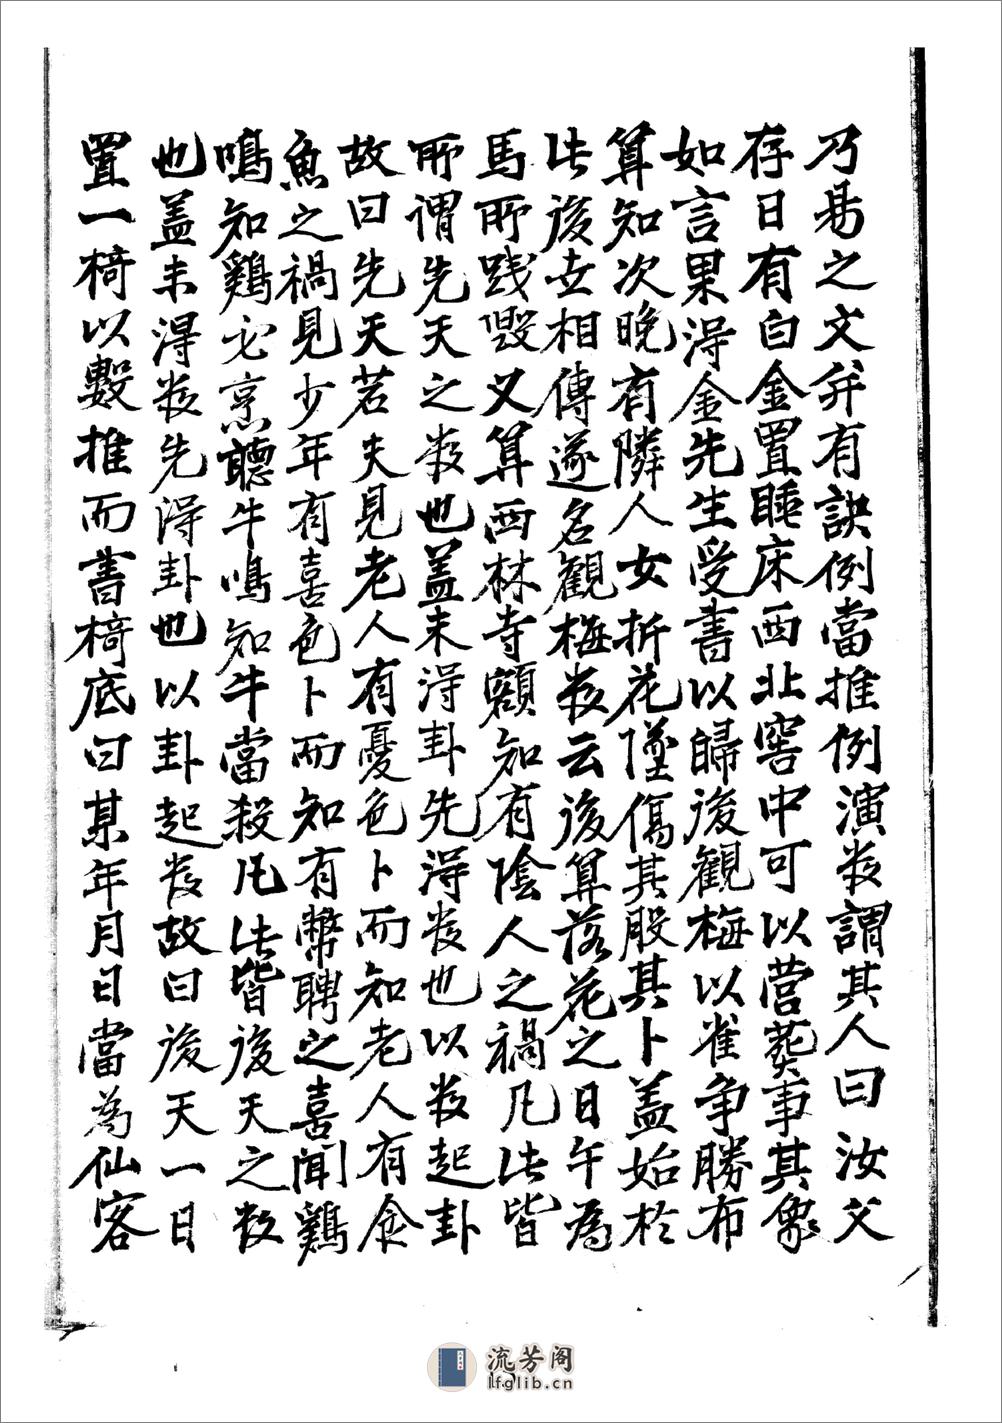 乃易之文并有訣例當推例演数謂其人曰汝父
存日有白金置睡床西北窖中可以营葬事其象
如言果得金先生受書以歸後觀梅以雀争勝布
算知次晚有隣人女折花墜傷其股其卜盖始於
此後世相傳遂名觀梅数云後算落花之日午為
馬所践毁又算西林寺額知有陰人之禍凡此皆
所謂先天之数也盖未淂卦先淂数也以数起卦
故曰先天若夫見老人有憂色卜而知老人有食
魚之禍見少年有喜色卜而知有幣聘之喜聞鷄
鳴知鷄必烹聽牛鳴知牛當殺凡此皆後天之数
也盖未淂数先淂卦也以卦起数故曰後天一日
置一椅以數推而書椅底曰某年月日當為仙客
流芳阁
lfglib.cn